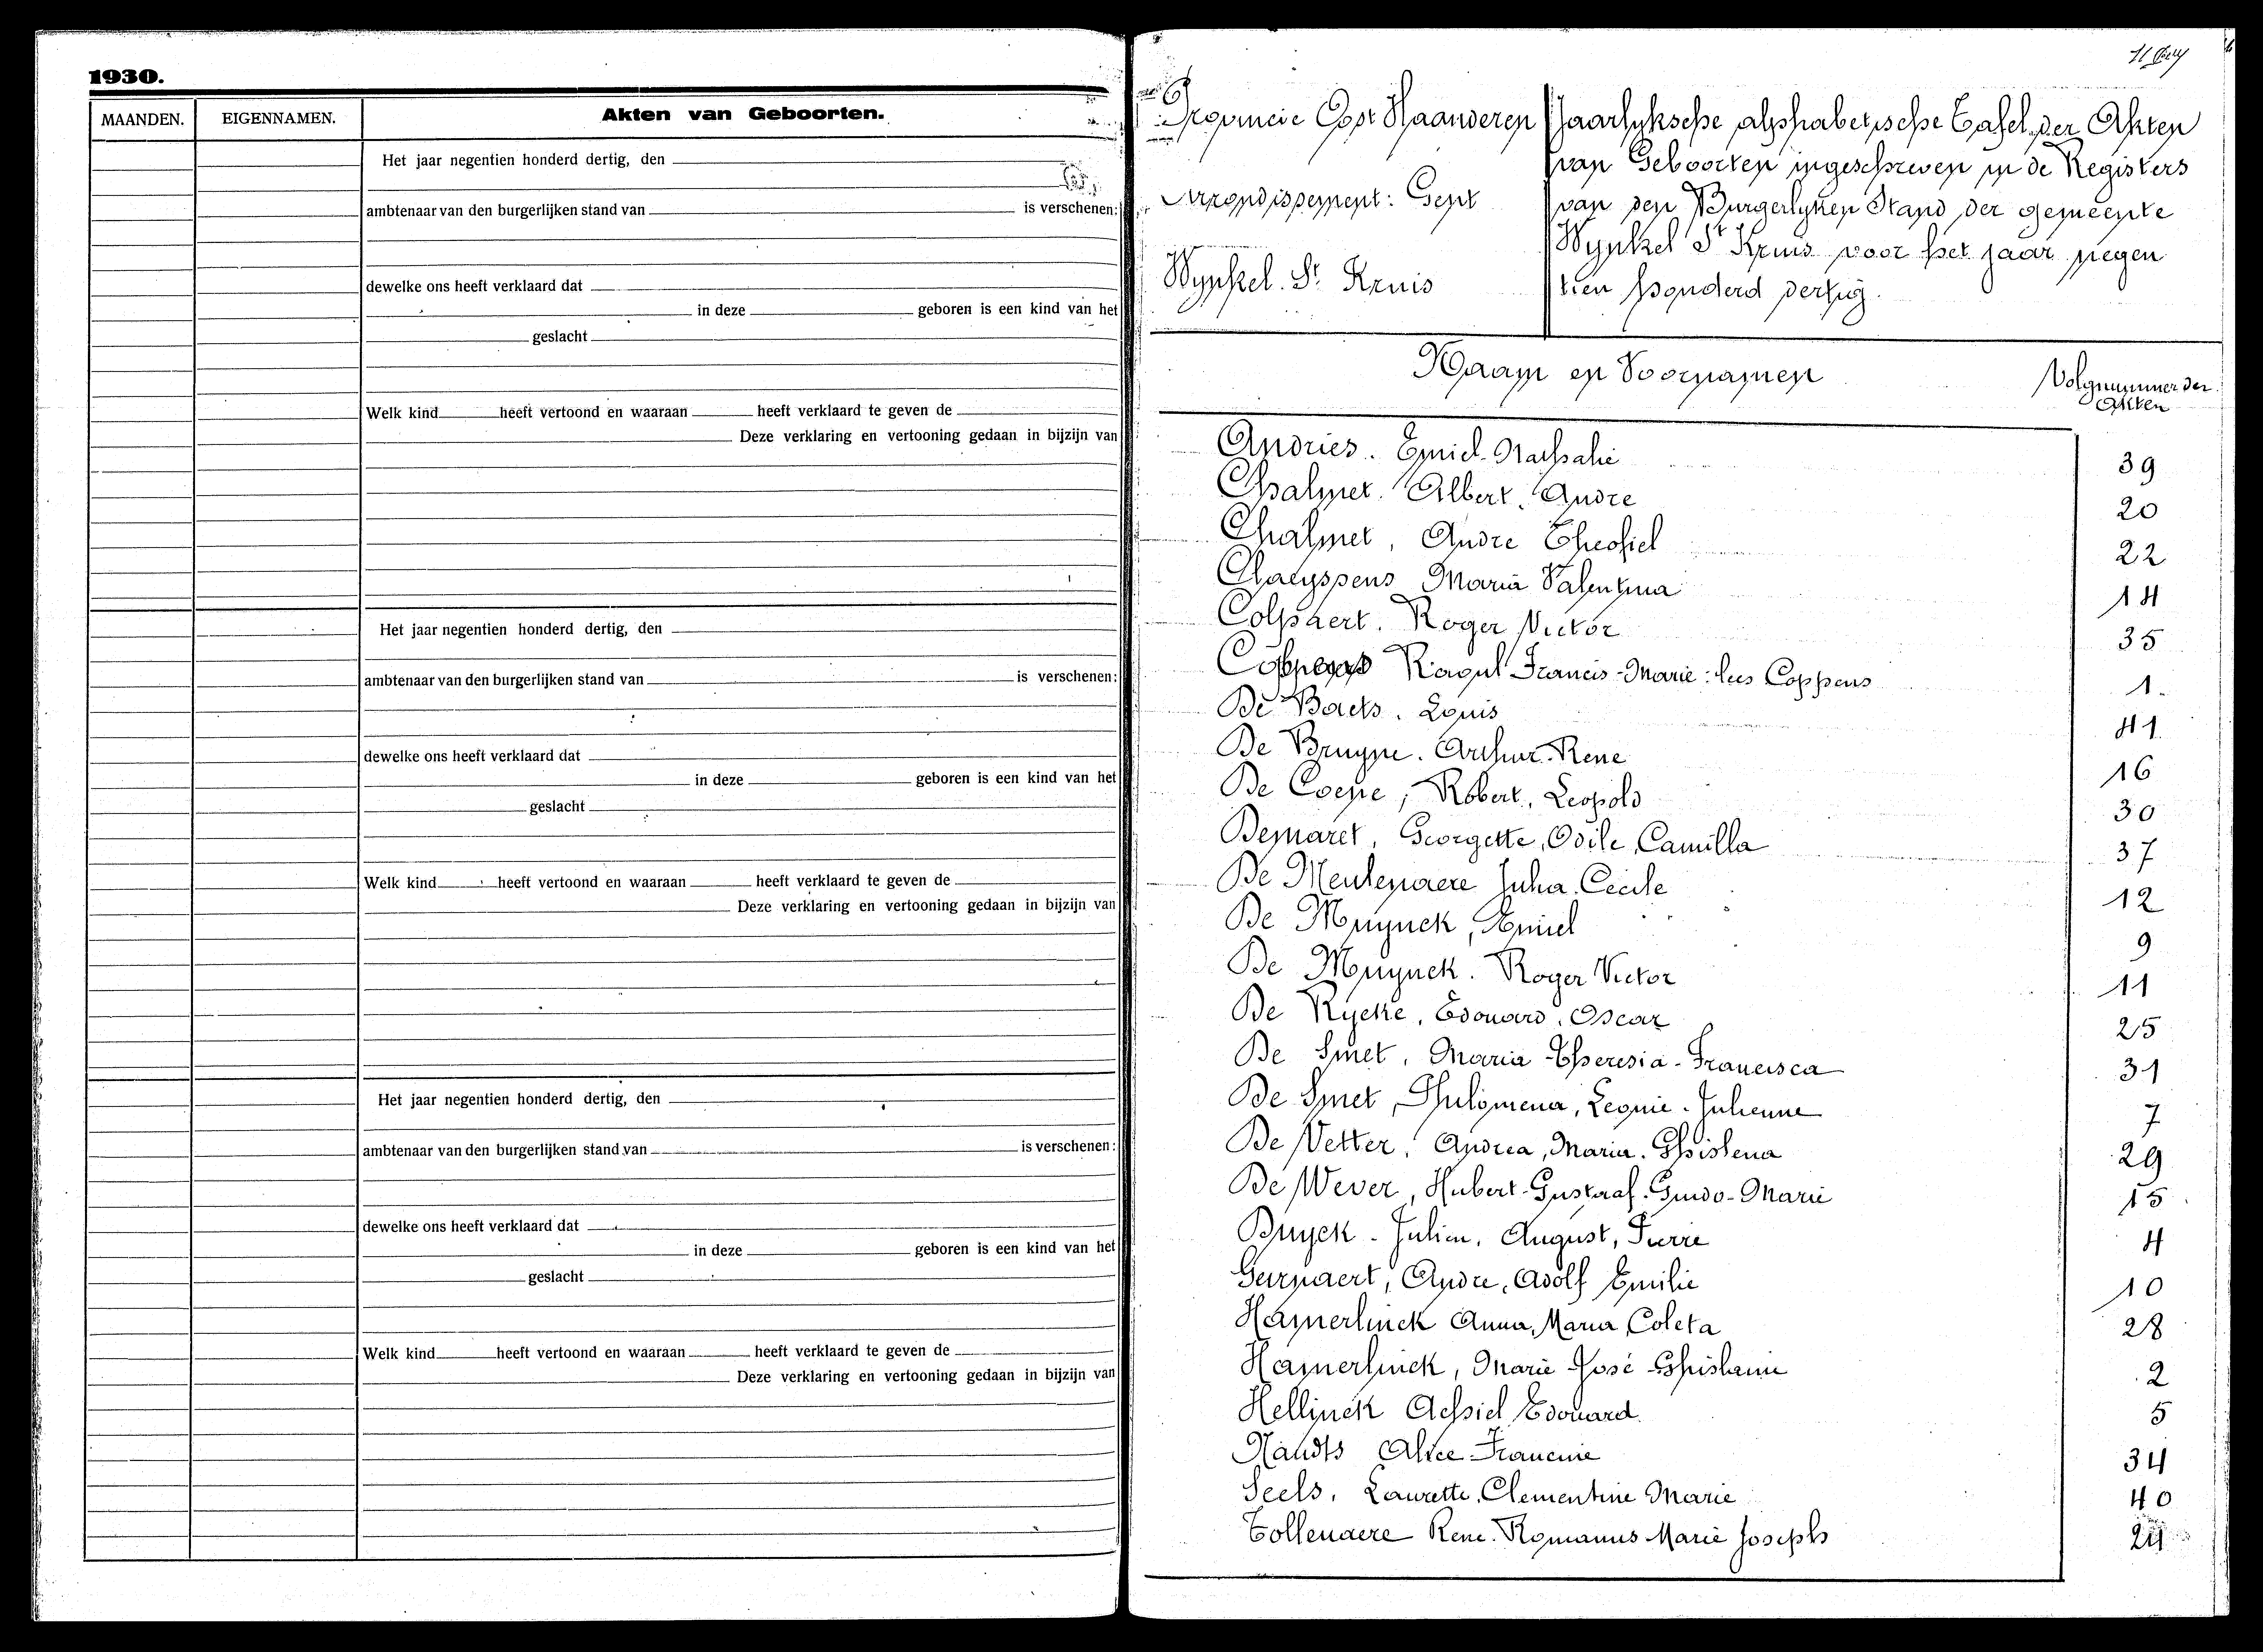 1930.
MAANDEN. EIGENNAMEN. Akten van Geboorten.
Het jaar negentien honderd dertig, den
ambtenaar van den burgerlijken stand van is verschenen:
dewelke ons heeft verklaard dat
in deze geboren is een kind van het
geslacht
Welk kind heeft vertoond en waaraan heeft verklaard te geven de
Deze verklaring en vertooning gedaan in bijzijn van
Het jaar negentien honderd dertig, den
ambtenaar van den burgerlijken stand van is verschenen:
dewelke ons heeft verklaard dat
in deze geboren is een kind van het
geslacht
Welk kind heeft vertoond en waaraan heeft verklaard te geven de
Deze verklaring en vertooning gedaan in bijzijn van
Het jaar negentien honderd dertig, den
ambtenaar van den burgerlijken stand van is verschenen:
dewelke ons heeft verklaard dat
in deze geboren is een kind van het
geslacht
Welk kind heeft vertoond en waaraan heeft verklaard te geven de
Deze verklaring en vertooning gedaan in bijzijn van
Provincie Oost Vlaanderen
Arrondissement: Gent
Wynkel. St Kruis
Jaarlyksche alphabetische Tafel der Akten
van Geboorten ingeschreven in de Registers
van den Burgerlyken Stand der gemeente
Wynkel St Kruis voor het jaar negen
tien honderd dertig.
Naam en Voornamen Volgnummer der
Akten
Andries. Emiel 39
Chalmet. Albert. Andre 20
Chalmet, Andre Theofiel 22
Claeyssens Maria Valentina 14
Colpaert. Roger Victor 35
Coppens Raoul Francis-Marie: lees Coppens 1.
De Baets. Louis 41.
De Bruyne. Arthur. Rene 16
De Coene, Robert, Leopold 30
Demaret, Georgette, Odile, Camilla 37
De Meulenaere Julia. Cecile 12
De Muynck, Emiel 9
De Muynck. Roger Victor 11
De Rycke, Edouard, Oscar 25
De Smet, Maria-Theresia-Francisca 31
De Smet, Philomena, Leonie-Julienne 7
De Vetter, Andrea, Maria. Ghislena 29
De Wever, Hubert-Gustaaf-Guido-Marie 15
Buyck-Julien, August, Pierre 4
Geirnaert, Andre, Adolf Emilie 10
Hamerlinck Anna, Maria, Coleta 28
Hamerlinck, Marie José Ghislaine 2
Hellinck Achiel Edouard. 5
Nandts Alice Francine 34
Seels, Laurette, Clementine Marie 40
Tollenaere Rene. Romanus Marie Joseph 24